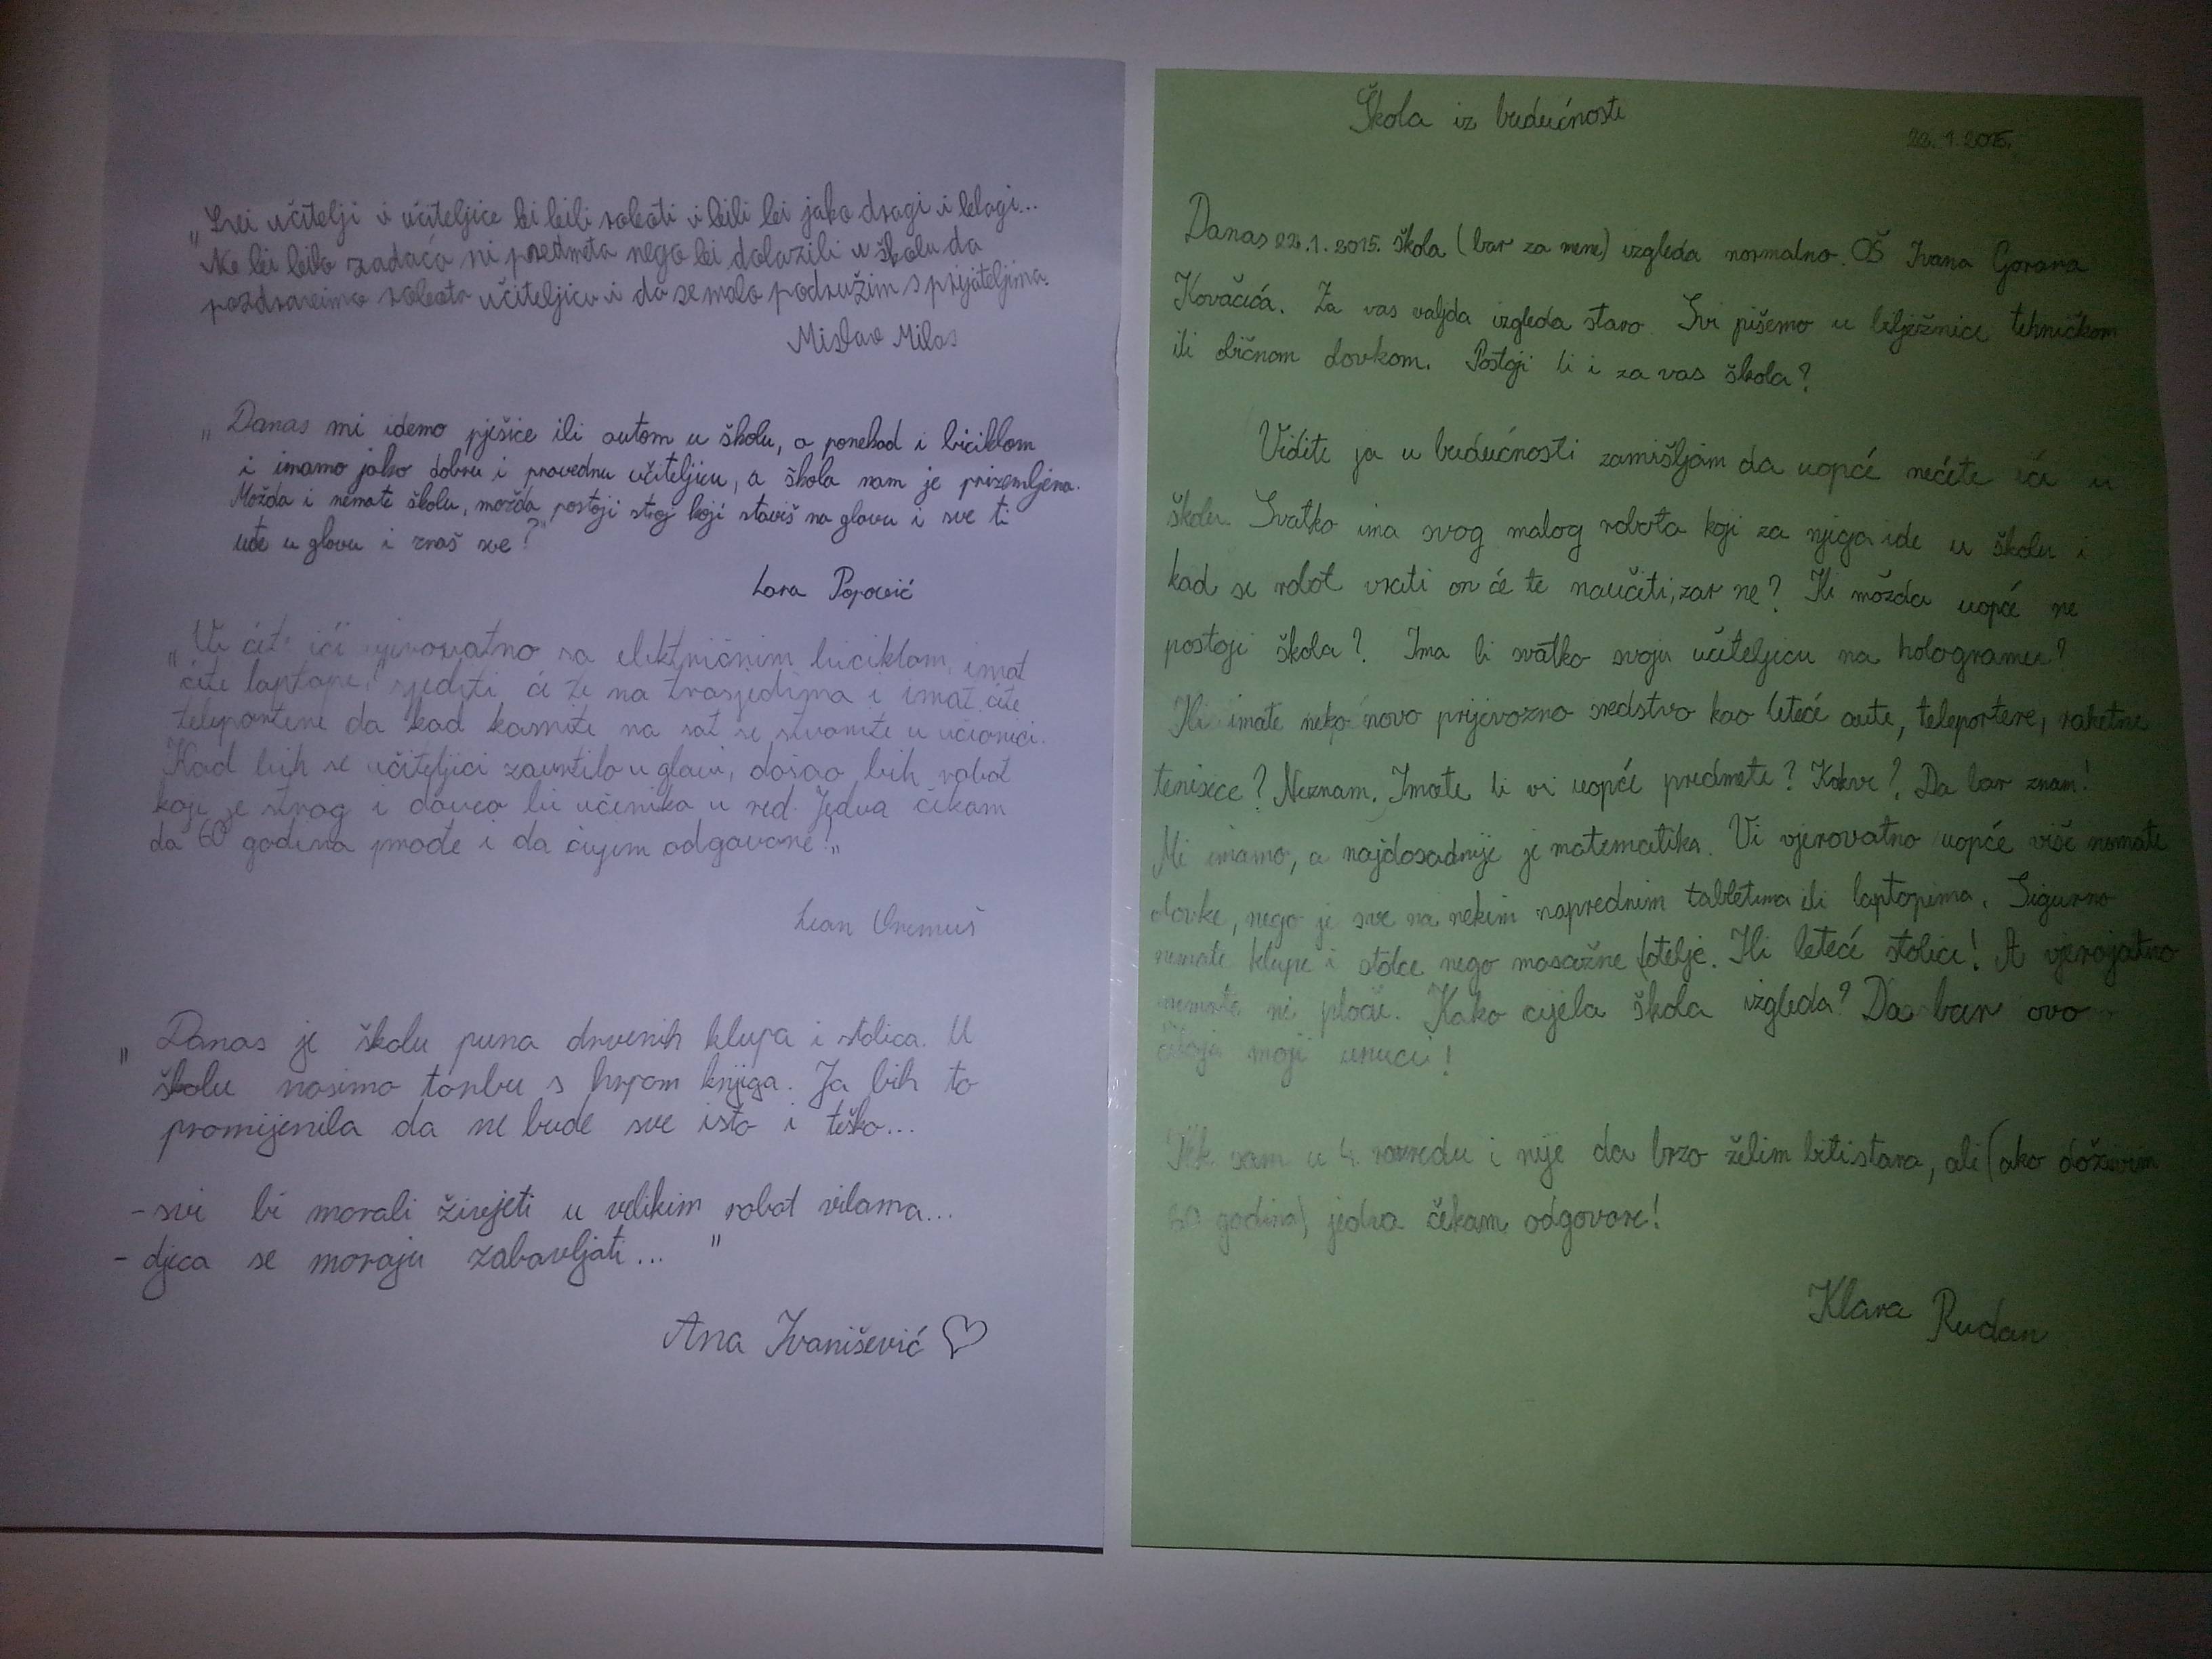 „Svi učitelji i učiteljice bi bili roboti i bili bi jako dragi i blagi...
Ne bi bilo zadaća ni predmeta nego bi dolazili u školu da
pozdravimo robota učiteljicu i da se malo podružim s prijateljima.
Mislav Milas
„Danas mi idemo pješice ili autom u školu, a ponekad i biciklom
i imamo jako dobru i pravednu učiteljicu, a škola nam je prizemljena.
Možda i nemate školu, možda postoji stroj koji staviš na glavu i sve ti
uđe u glavu i znaš sve?"
Lara Popović
„Vi ćete ići vjerovatno sa električnim biciklom, imat
ćete laptope, sjediti će te na trosjedima i imat ćete
teleportere da kad kasnite na sat se stvorite u učionici.
Kad bih se učiteljici zavrtilo u glavi, došao bih robot
koji je strog i doveo bi učenike u red. Jedva čekam
da 60 godina prođe i da čujem odgovore!„
Lean Oremuš
„Danas je školu puna drvenih klupa i stolica. U
školu nosimo torbu s hrpom knjiga. Ja bih to
promijenila da ne bude sve isto i teško...
- svi bi morali živjeti u velikim robot vilama...
- djeca se moraju zabavljati... "
Ana Ivanišević ♡
Škola iz budućnosti
22.1.2015.
Danas 22.1.2015. škola (bar za mene) izgleda normalno. OŠ Ivana Gorana
Kovačića. Za vas valjda izgleda staro. Svi pišemo u bilježnice tehničkom
ili običnom olovkom. Postoji li i za vas škola?
Vidite ja u budućnosti zamišljam da uopće nećete ići u
školu. Svatko ima svog malog robota koji za njega ide u školu i
kad se robot vrati on će te naučiti, zar ne? Ili možda uopće ne
postoji škola? Ima li svatko svoju učiteljicu na hologramu?
Ili imate neko novo prijevozno sredstvo kao leteće aute, teleportere, raketne
tenisice? Neznam. Imate li vi uopće predmete? Kakve? Da bar znam!
Mi imamo, a najdosadnije je matematika. Vi vjerovatno uopće više nemate
olovke, nego je sve na nekim naprednim tabletima ili laptopima. Sigurno
nemate klupe i stolce nego masažne fotelje. Ili leteće stolice! A vjerojatno
nemate ni ploče. Kako cijela škola izgleda? Da bar ovo
čitaju moji unuci!
Tek sam u 4. razredu i nije da brzo želim biti stara, ali (ako doživim
60 godina) jedva čekam odgovore!
Klara Rudan